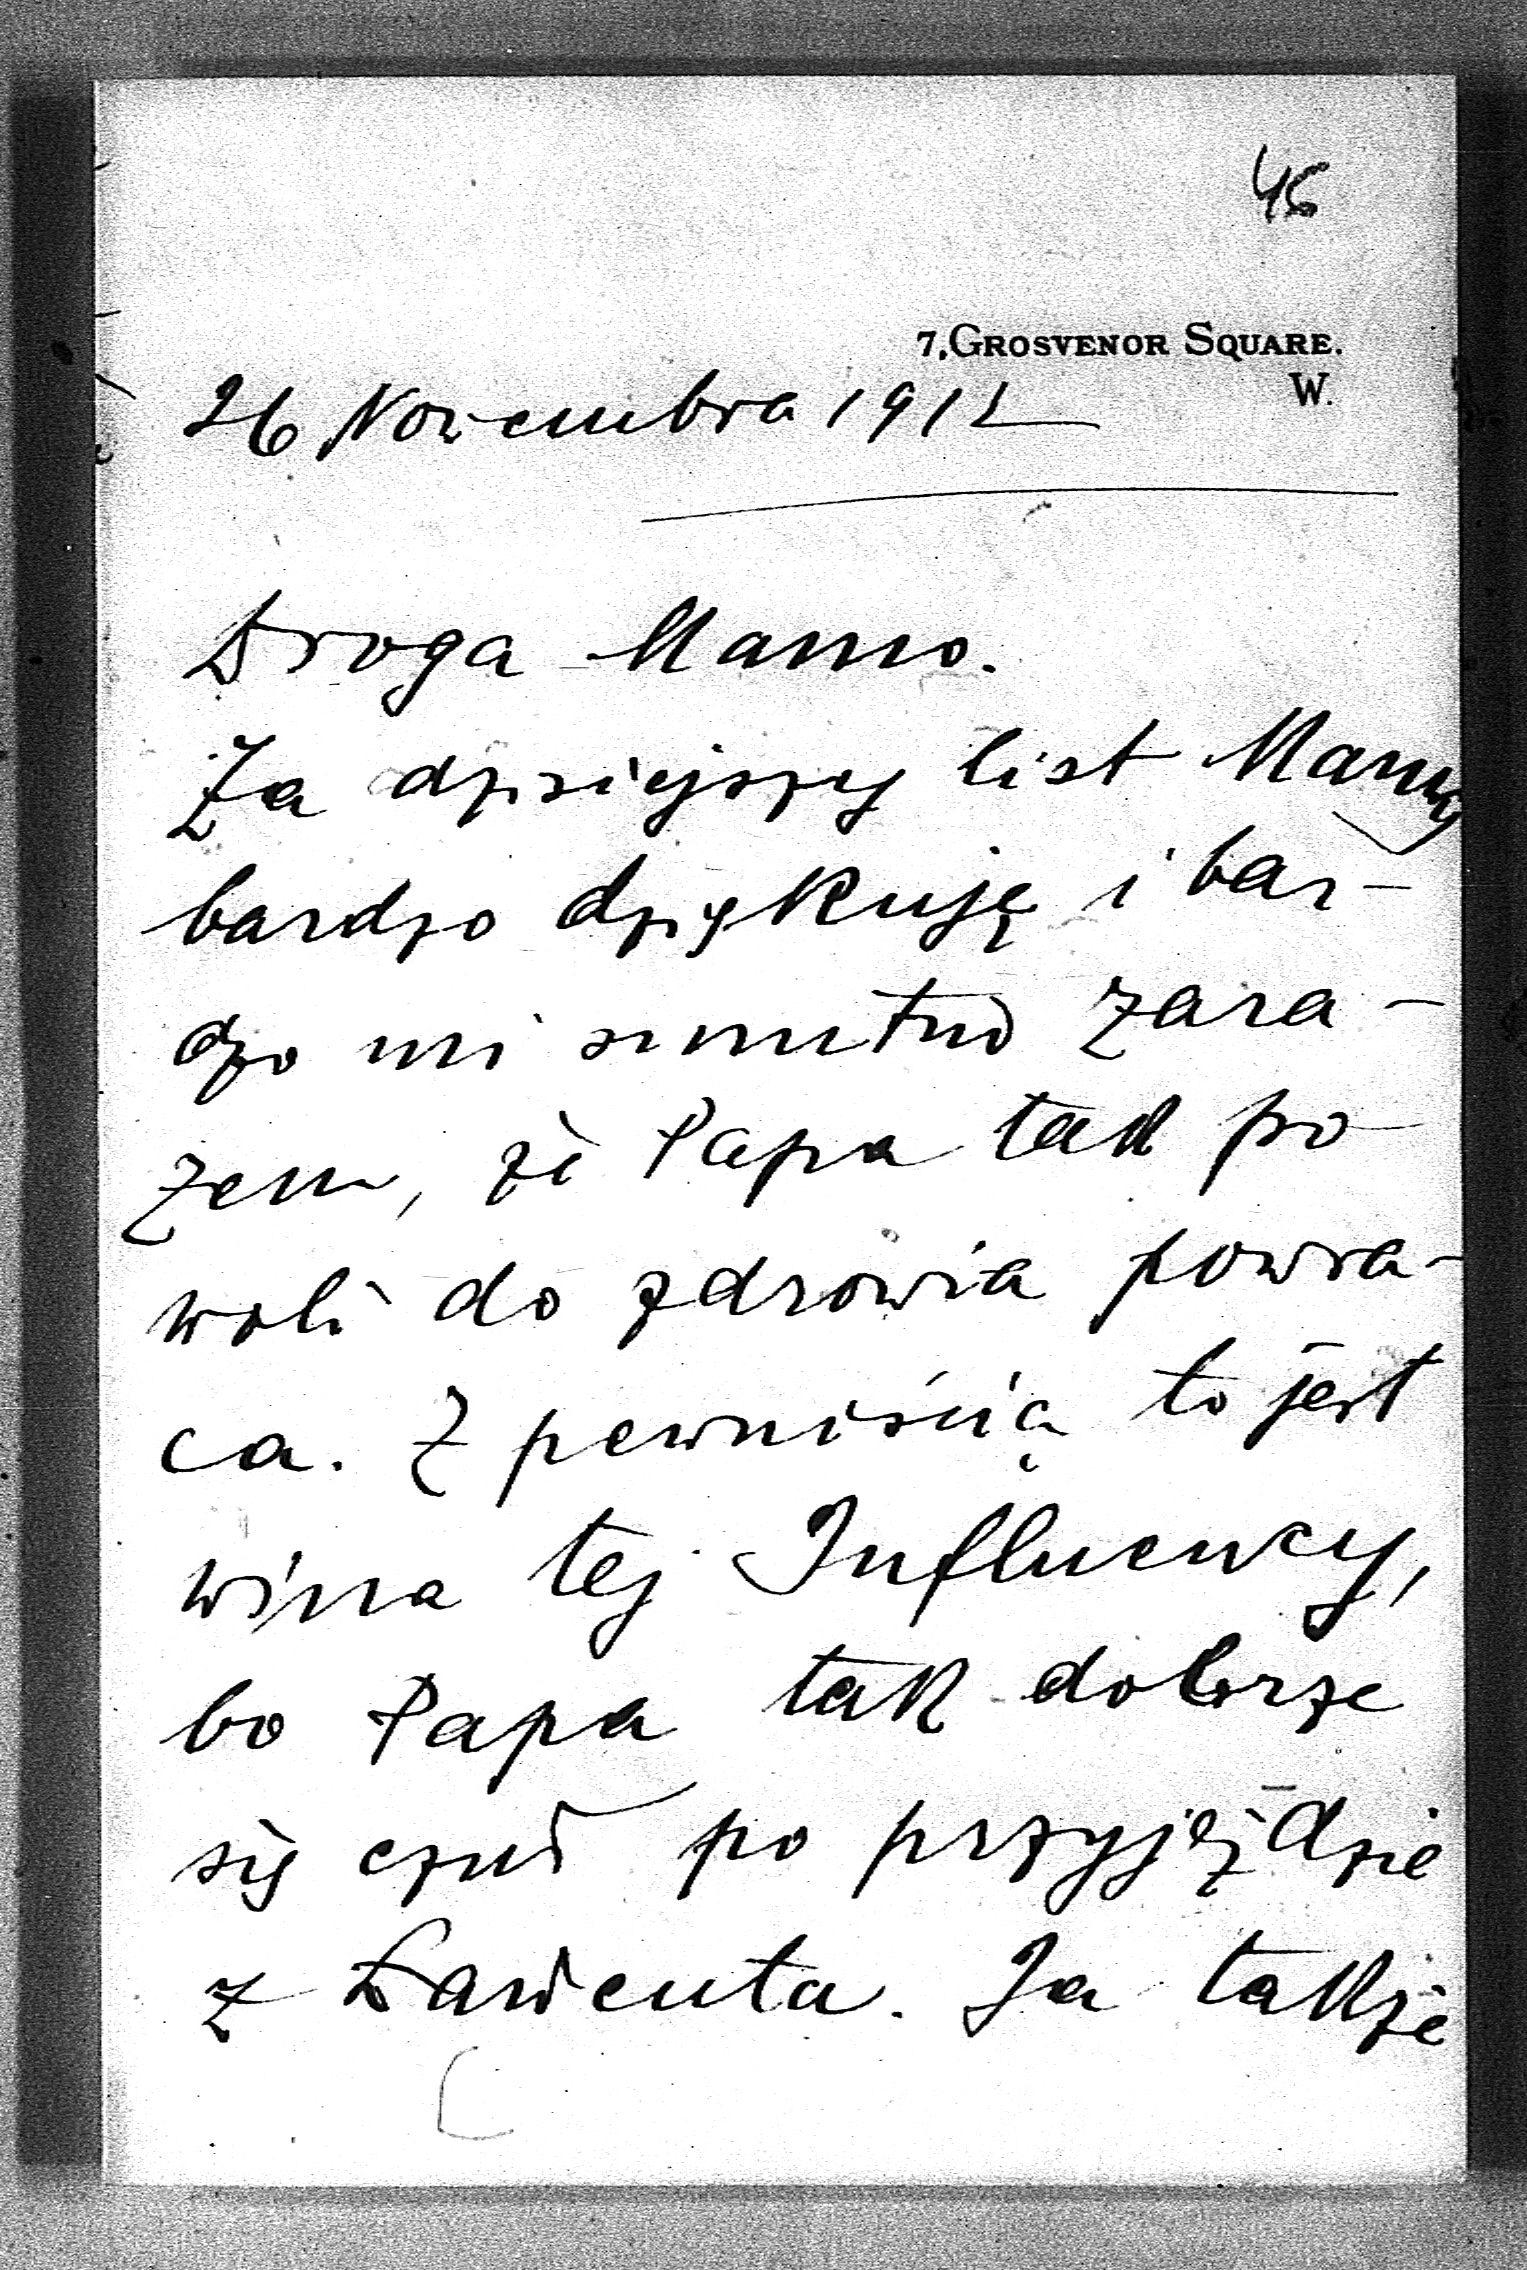 45
7, GROSVENOR SQUARE.
W.
26 Novembra 1912
Droga Mamo.
Za dzisiejszy list Mamy
bardzo dziękuję i bar-
dzo mi smutno zara-
zem, że Papa tak po
woli do zdrowia powra-
ca. Z pewniścią to jest
wina tej Influency,
bo Papa tak dobrze
się czuł po przyjeździe
z Łańcuta. Ja także